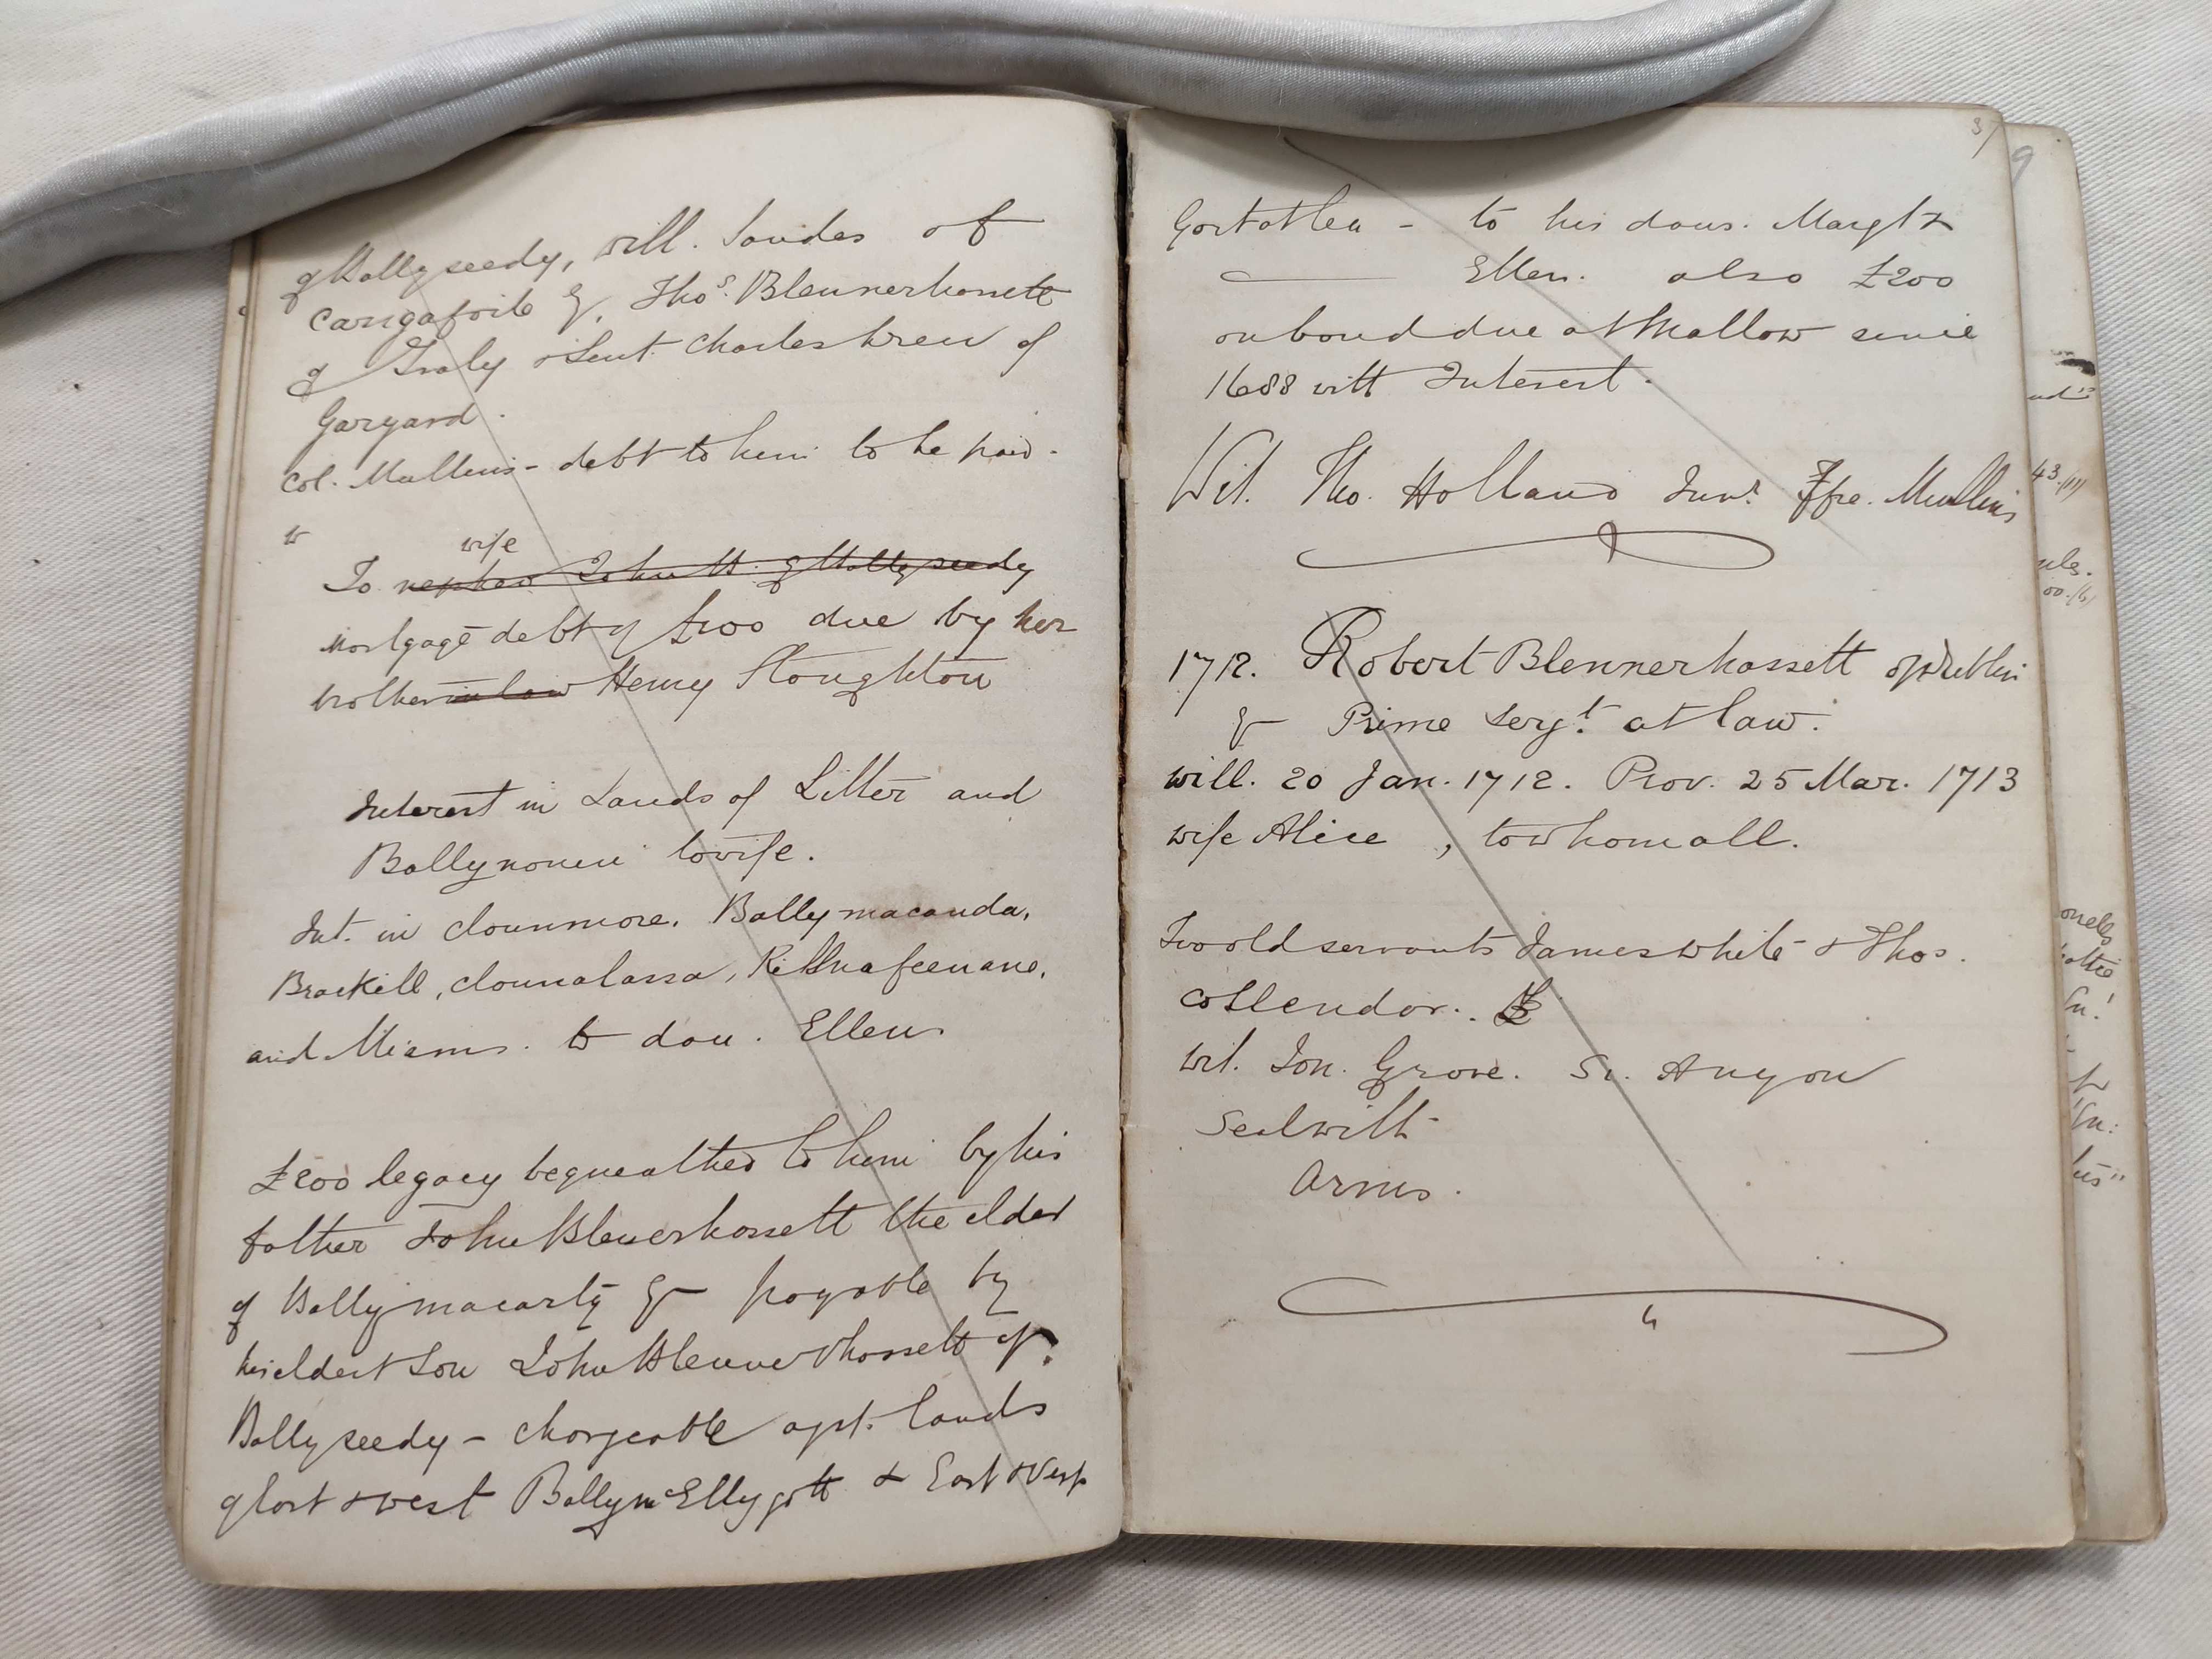 of Ballyseedy, Will. Sandes of
Carigafoile &, Thos. Blennerhassett
of Traly & Lieut. Charles Crew of
Garyard.
Col. Mullins - debt to him to be paid.
to
wife
To nephew John B. of Ballyseedy
mortgage debt of £100 due by her
brother in law Henry Stoughton
Interest in Lands of Litter and
Ballynoneen to wife.
Int. in Clounmore. Ballymacanda,
Brackill, Clounalassa,
and Miams. to dau. Ellen
£200 legacy bequeathed to him by his
father John Blenerhassett the elder
of Ballymacarty & payable by
his eldest son John Blennerhassett of
Ballyseedy - chargeable agst. lands
of East & West BallymcEllygott & East & West
3/
Gortatlea - to his daus. Margt &
Ellen. also £200
on bond due at Mallow since
1688 with Interest.
Wit. Tho. Holland Junr. Jffre. Mullins
1712. Robert Blennerhassett of Dublin
& Prime Sergt. at law.
will. 20 Jan. 1712. Prov. 25 Mar. 1713
wife Alice , to whom all.
Two old servants James White & Thos.
Collendor.
wit. Jon. Grove. Anyon
Seal with
Arms.
9